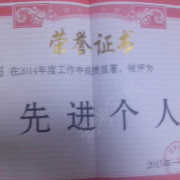 荣誉证书
在2014年度工作中成绩显著,被评为
先进个人
2015年